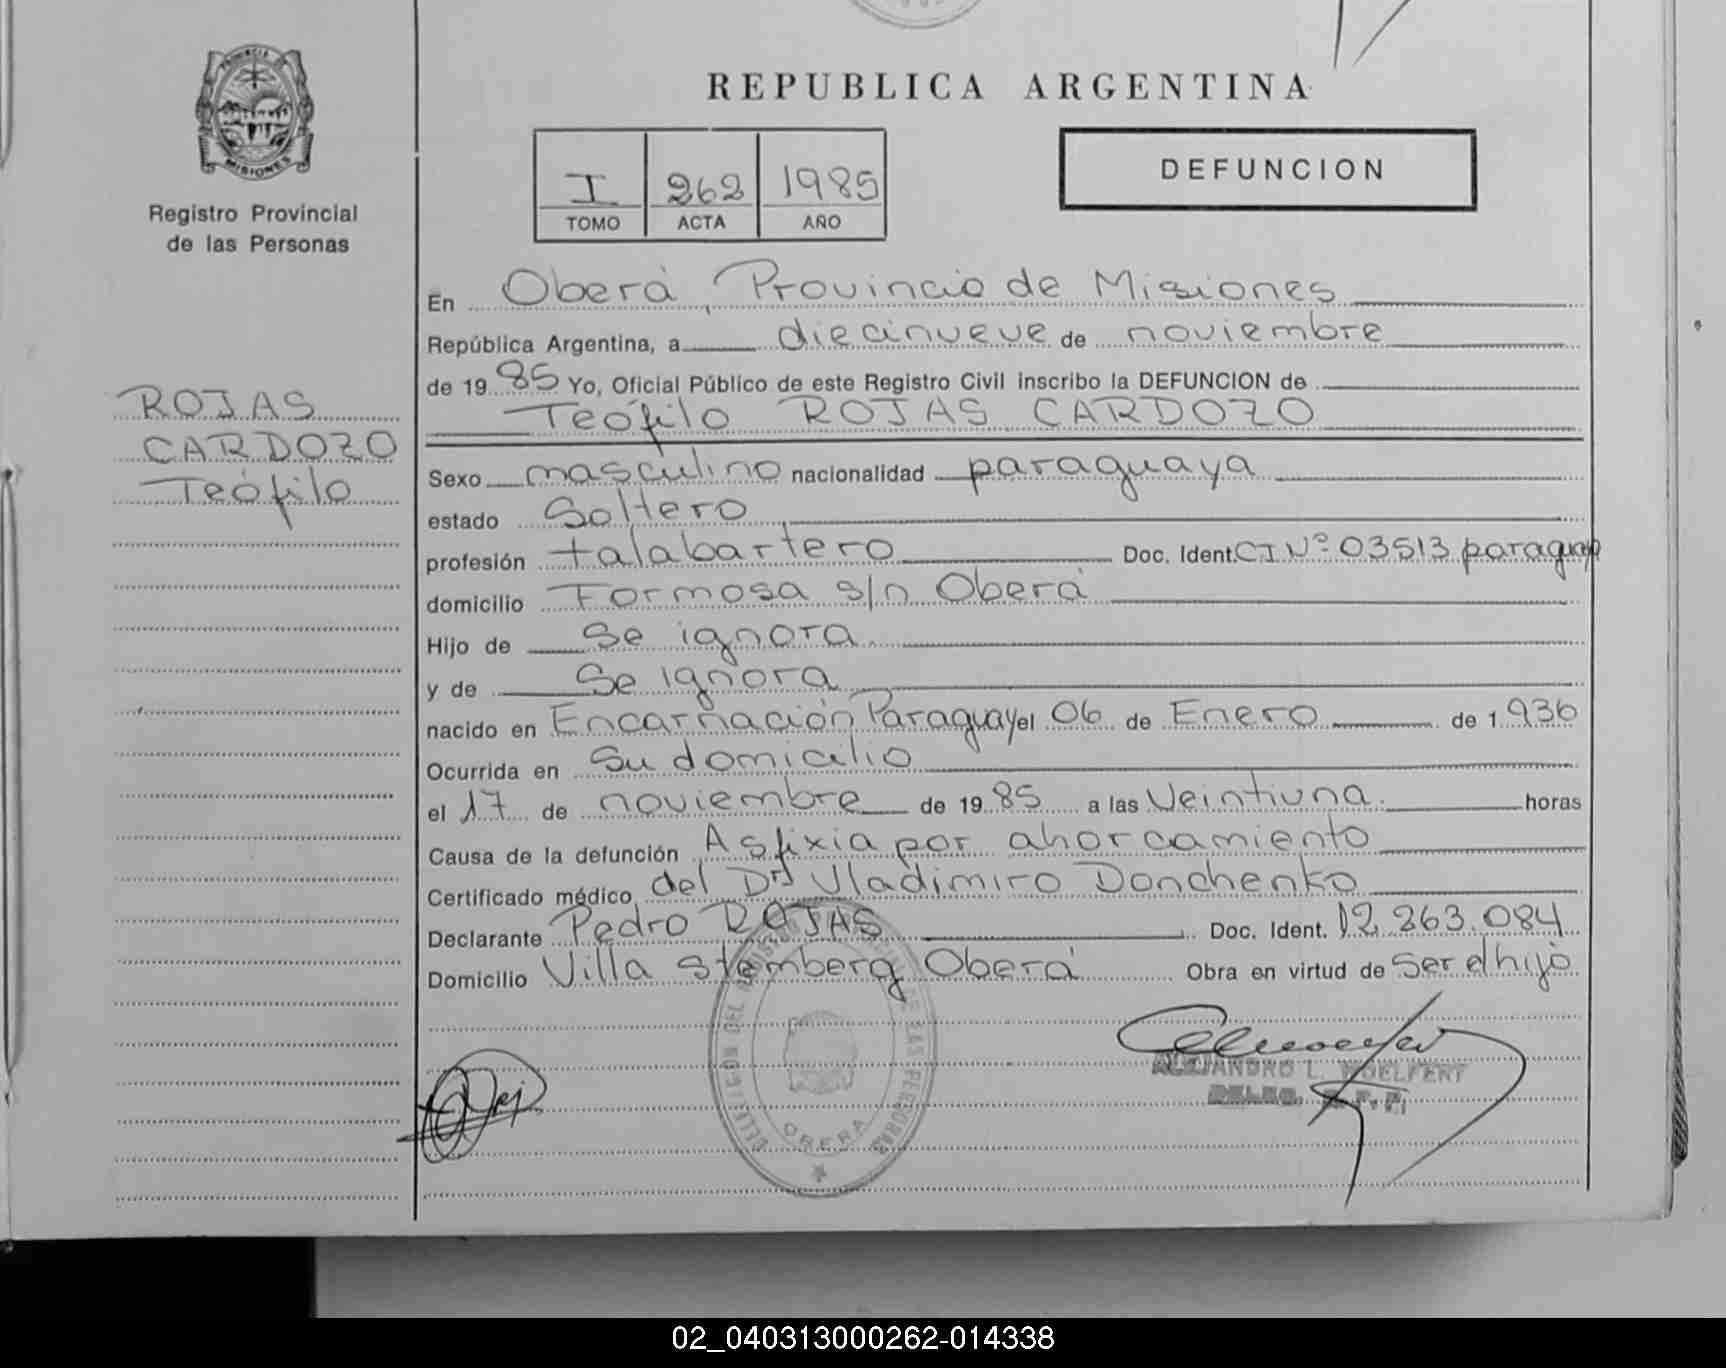 REPUBLICA ARGENTINA
PROVINCIA DE
MISIONES
Registro Provincial
de las Personas
I 262 1985
TOMO ACTA AÑO
DEFUNCION
ROJAS
CARDOZO
Teófilo
En Oberá, Provincia de Misiones
República Argentina, a diecinueve de noviembre
de 19 85 Yo, Oficial Público de este Registro Civil inscribo la DEFUNCION de
Teófilo ROJAS CARDOZO
Sexo masculino nacionalidad paraguaya
estado Soltero
profesión talabartero Doc. Ident. CI Nº 03513 paraguay
domicilio Formosa s/n Oberá
Hijo de Se ignora
y de Se ignora
nacido en Encarnación Paraguay el 06 de Enero de 1.936
Ocurrida en Su domicilio
el 17 de noviembre de 19 85 a las Veintiuna horas
Causa de la defunción Asfixia por ahorcamiento
Certificado médico del Dr Vladimiro Donchenko
Declarante Pedro ROJAS Doc. Ident. 12.263.084
Domicilio Villa Stemberg Oberá Obra en virtud de Ser el hijo
DE LAS PERSONAS
OBERA
ALEJANDRO L. WOELFERT
DELEG. R. P. P.
02_040313000262-014338